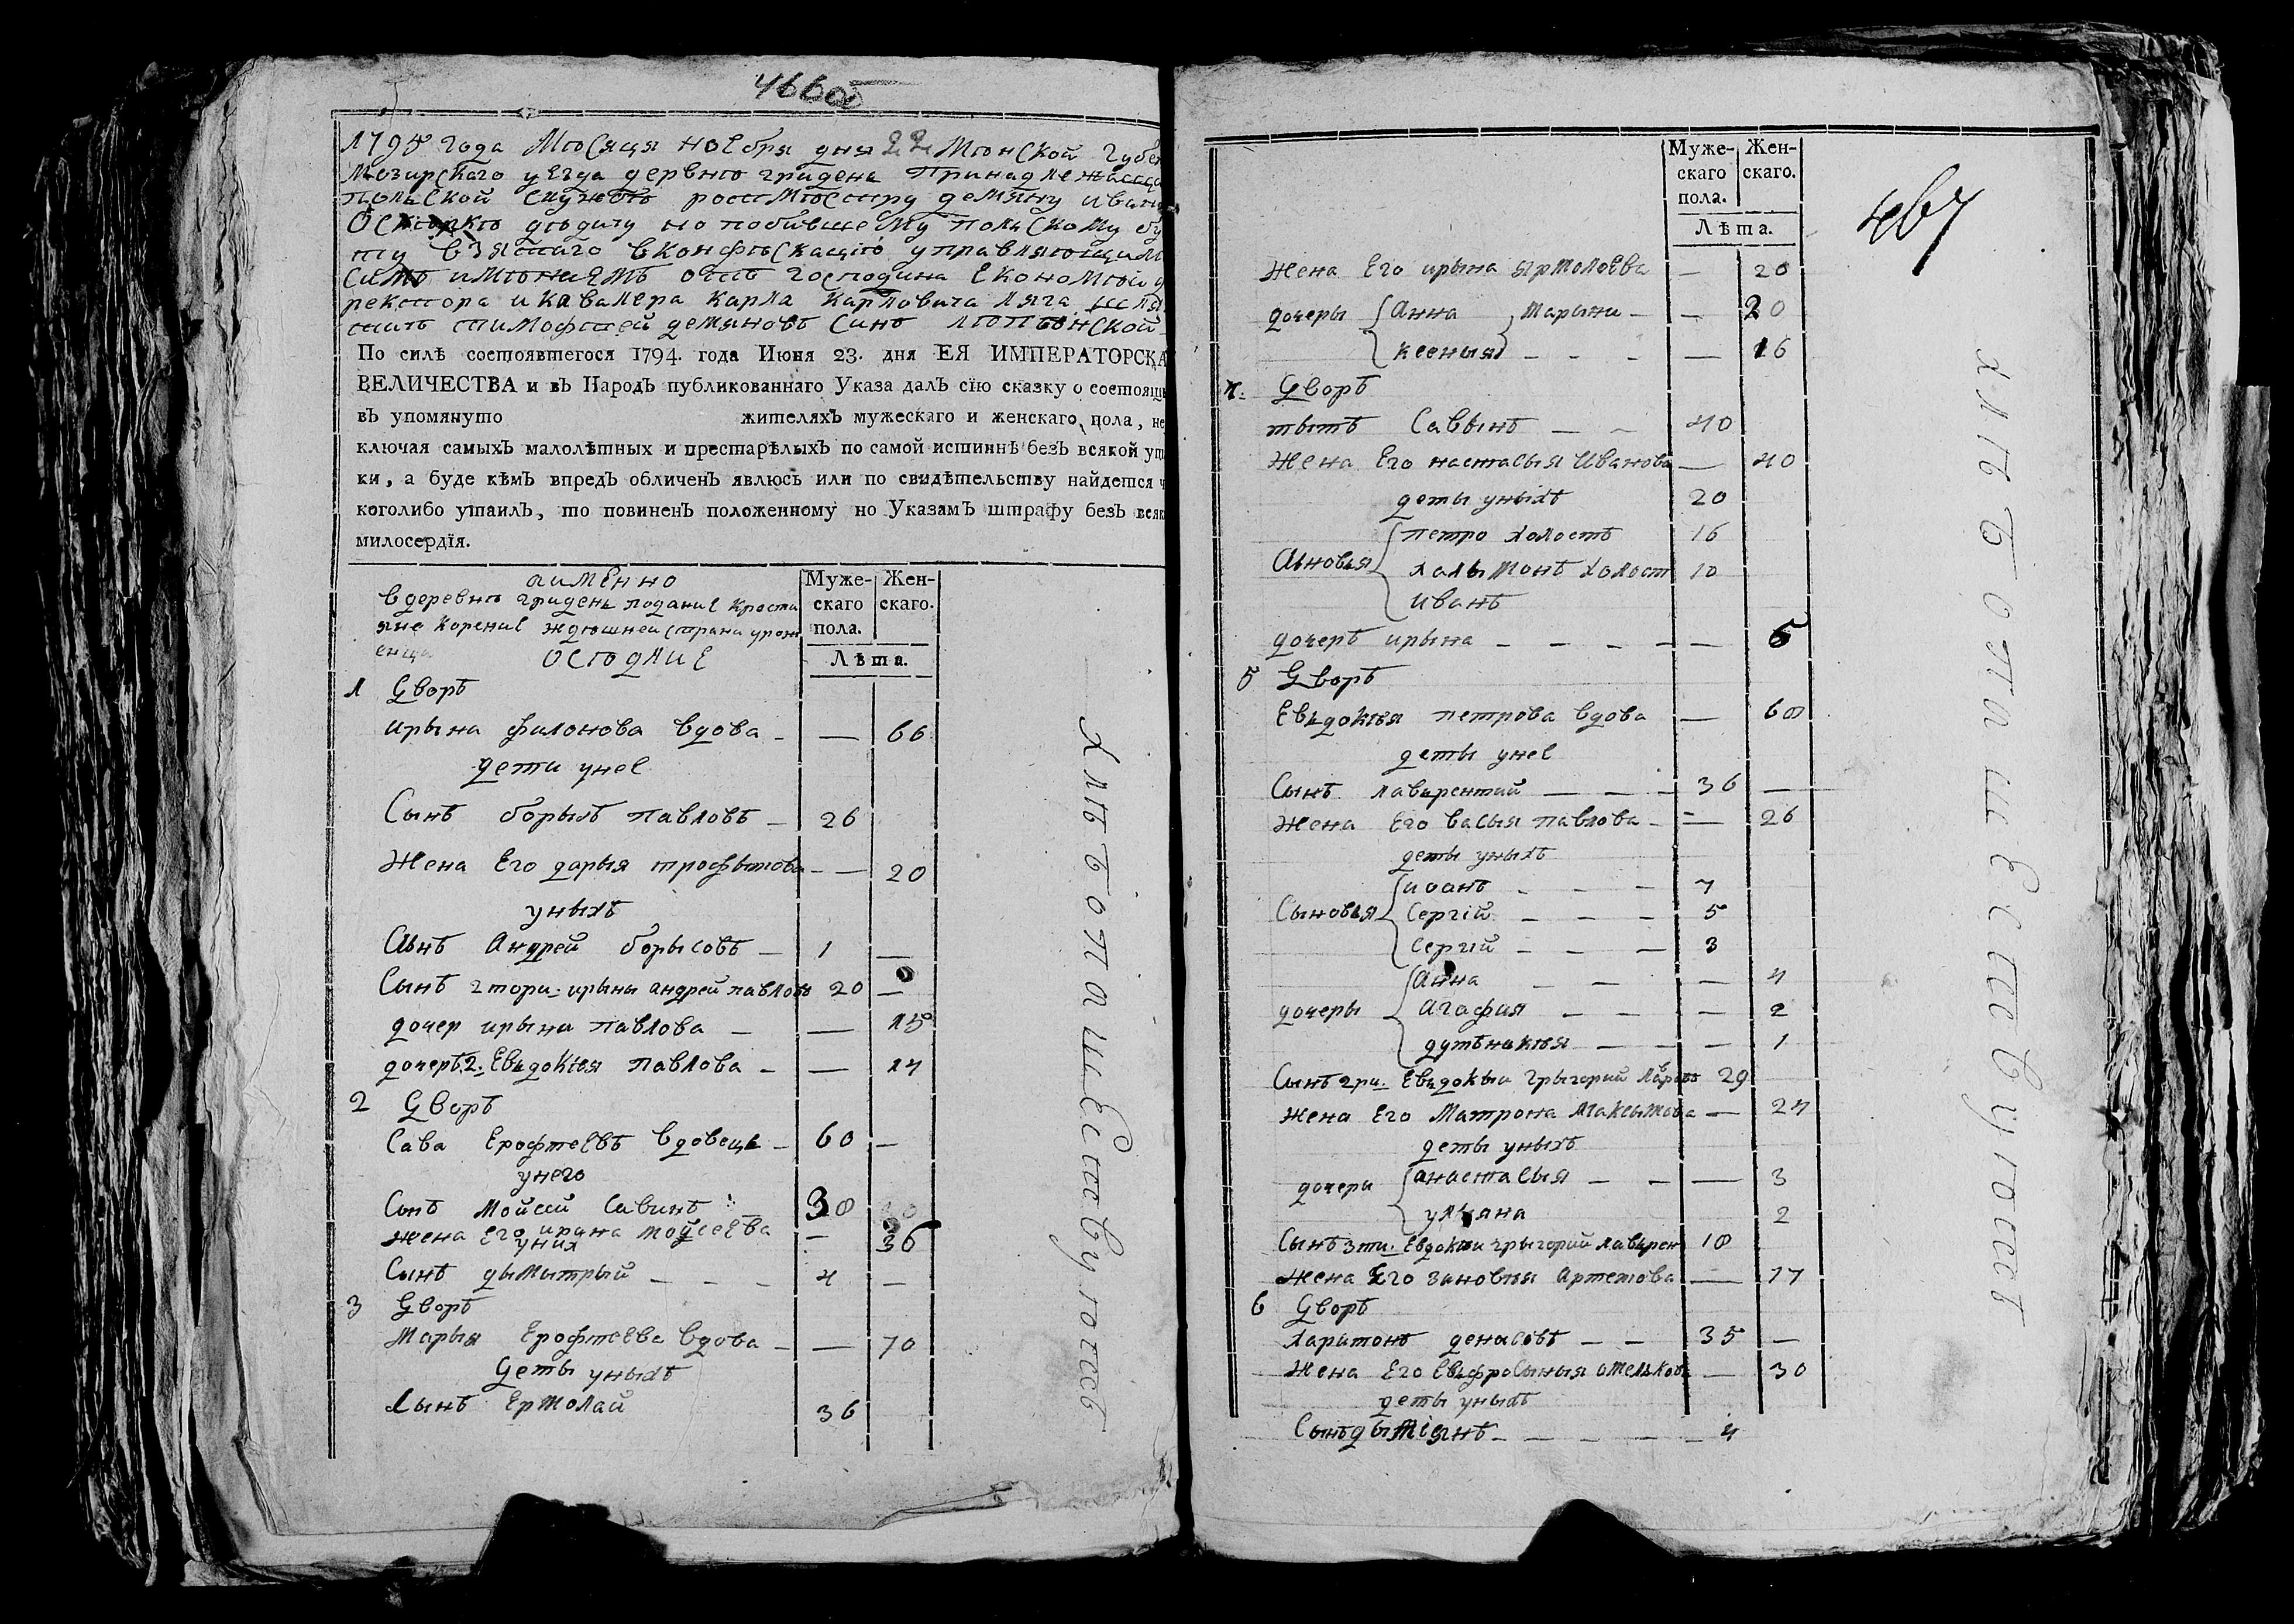 466об
1795 года Мѣсяця ноебря дня 22 Мѣнской Губе
Мозирскаго уезда деревнѣ гридень Принадлежасща
польской службѣ ротмѣстру демяну Иван
взястаго вконфѣскацѣю управляющим
симъ имѣниемъ отъ господина Економѣй д
ректора и кавалера Карла Карловича
тимофтей демяновъ синъ
По силѣ состоявшегося 1794. года Июня 23. дня ЕЯ ИМПЕРАТОРСКА
ВЕЛИЧЕСТВА и въ Народъ публикованнаго Указа далъ сїю сказку о состоящ
въ упомянуто жителяхъ мужескаго и женскаго пола, не
ключая самыхъ малолѣтныхъ и престарѣлыхъ по самой истиннѣ безъ всякой ут
ки, а буде кѣмъ впредъ обличенъ явлюсь или по свидѣтельству найдется ч
коголибо утаилъ, то повиненъ положенному по Указамъ штрафу безъ всяк
милосердїя.
аимЕнно
вдеревнѣ гридень подание крести
яне корение здѣшней страни урож
енци
осѣдлие
Муже-
скаго
пола.
Жен-
скаго.
Лѣта.
1 Дворъ
ирына филонова вдова — — 66
дети унеЕ
Сынъ борыъ павловъ — 26
Жена Его дарыя трофымова — — 20
уныхъ
Сынъ Андрей борысовъ — 1 —
Сынъ 2 тори: ирыны андрей павловъ 20 —
дочер ирына павлова — — 15
дочеръ 2. Евъдокѣя павлова — — 14
2 Дворъ
Сава Ерофѣевъ вдовецъ — 60 —
унего
Синъ мойсей Савинъ 30
жена Его ирина мойсеЕва — 36
униx
Синъ дымытрый — — — 4 —
3 Дворъ
Марыя Ерофѣева вдова — — 70
деты уныхъ
Сынъ Ермолай 36
хлѣбопашЕство
467
Муже-
скаго
пола.
Жен-
скаго.
Лѣта.
жена Его ирына ярмолоЕва — 20
дочеры Анна Марыни — — 20
ксеныя — — — — 16
4. Дворъ
тытъ Саввынъ — — 40
жена Его настасыя Иванова — 40
деты уныхъ 20
петро холостъ 16
Сыновья
халымонъ холост 10
иванъ
дочеръ ирына — — — — — 5
5 Дворъ
Евъдокѣя петрова вдова — 60
деты унеЕ
Сынъ лавърентий — — — 36 —
жена Его васыя павлова — — 26
деты уныхъ
иоанъ — — — 7
Сыновья Сергій — — — 5
Сергій — — — 3
Анна — — — 4
дочеры Агафия — — — 2
— — — 1
Сынъ 2ри. Евъдокыи грыгорий 29
жена Его Матрона Максымова — 24
деты уныхъ
дочери анастасыя — — — 3
улияна 2
Сынъ 3ти. Евдокѣи грыгорий лавърен 18
жена Его зиновия Артемова — 17
6 Дворъ
харитонъ денисовъ — — 35 —
жена Его Евъфросыныя омелькова — 30
деты уныхъ
Сынъ дымїянъ — — — — — 4
хлѣбопашЕство